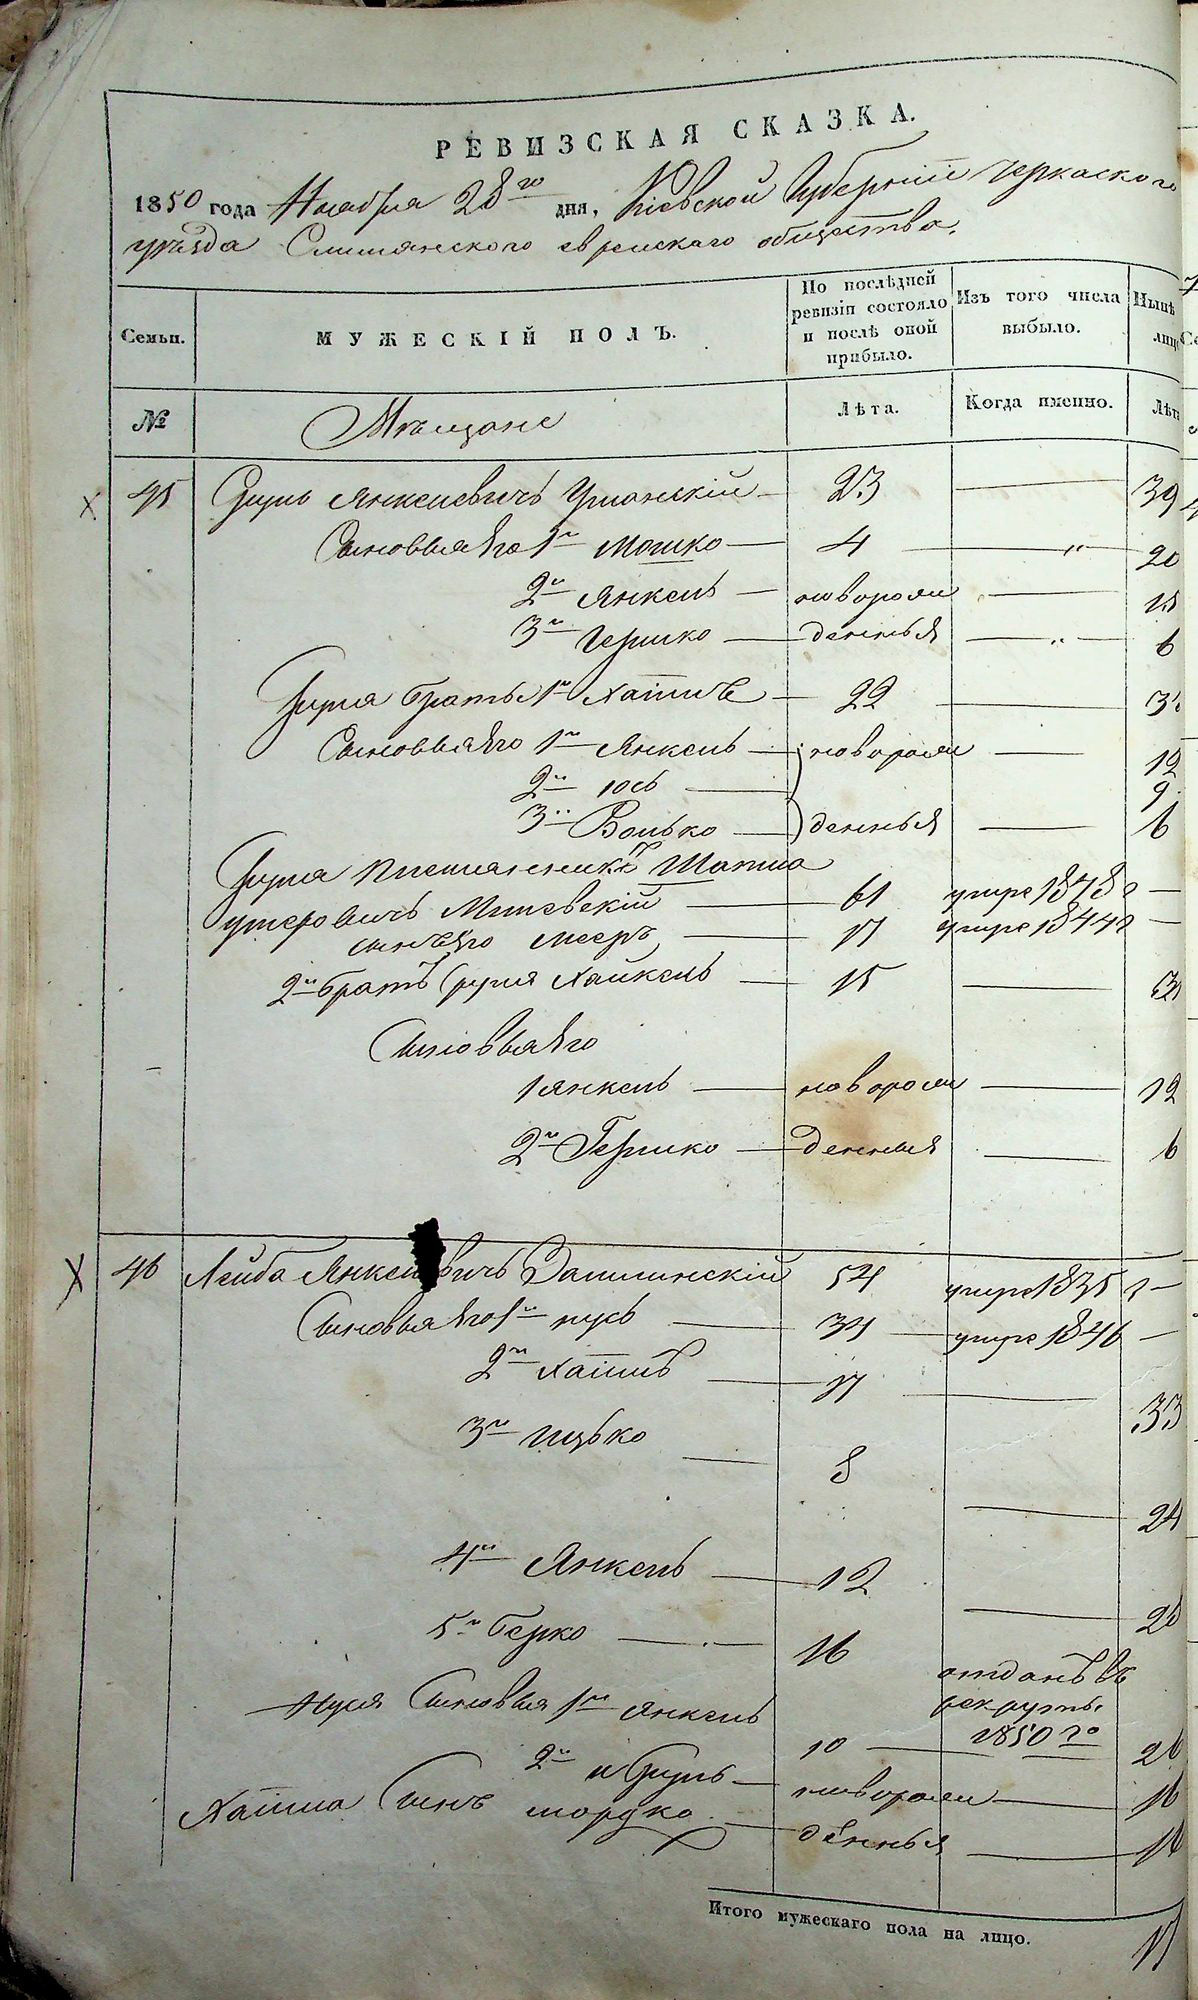 РЕВИЗСКАЯ СКАЗКА.
1850 года Ноября 28го дня, Кіевской Губерніи Черкаского
уѣзда Смилянского еврейскаго общества.
Семьи.
МУЖЕСКІЙ ПОЛЪ.
По послѣдней
ревизіи состояло
и послѣ оной
прибыло.
Изъ того числа
выбыло.
Нынѣ
лицо
№
Мѣщане
Лѣта.
Когда именно.
Лѣта
45 Сруль Янкелевичъ Уманскій 23 39
Сыновья Его 1й Мошко 4 " 20
2й Янкель новорож 15
3й Гершко денныя " 6
Сруля братья 1й Хаимъ 22 38
Сыновья Его 1й Янкель новорож 12
2й Юсь 9
3й Волько денныя 6
Сруля племянникъ Шапса
Мошевскій 61 умре 1848 г
сынъ Его Мееръ 17 умре 1844 г
2й братъ Сруля Хайкель 15 31
Сыновья Его
1 Янкель новорож 12
2й Гершко денныя 6
46 Лейба Янкелевичъ Запилинскій 54 умре 1835 г
Сыновья Его 1й Нусь 34 умре 1846
2й Хаимъ 17 33
3й Ицько 8 24
4й Янкель 12 28
5й Берко 16 отданъ въ
рекруты
1850 го
Нуся Сыновья 1й Янкель 10 26
2й Сруль новорож 16
Хаима Сынъ Мордко денныя 16
Итого мужескаго пола на лицо. 17